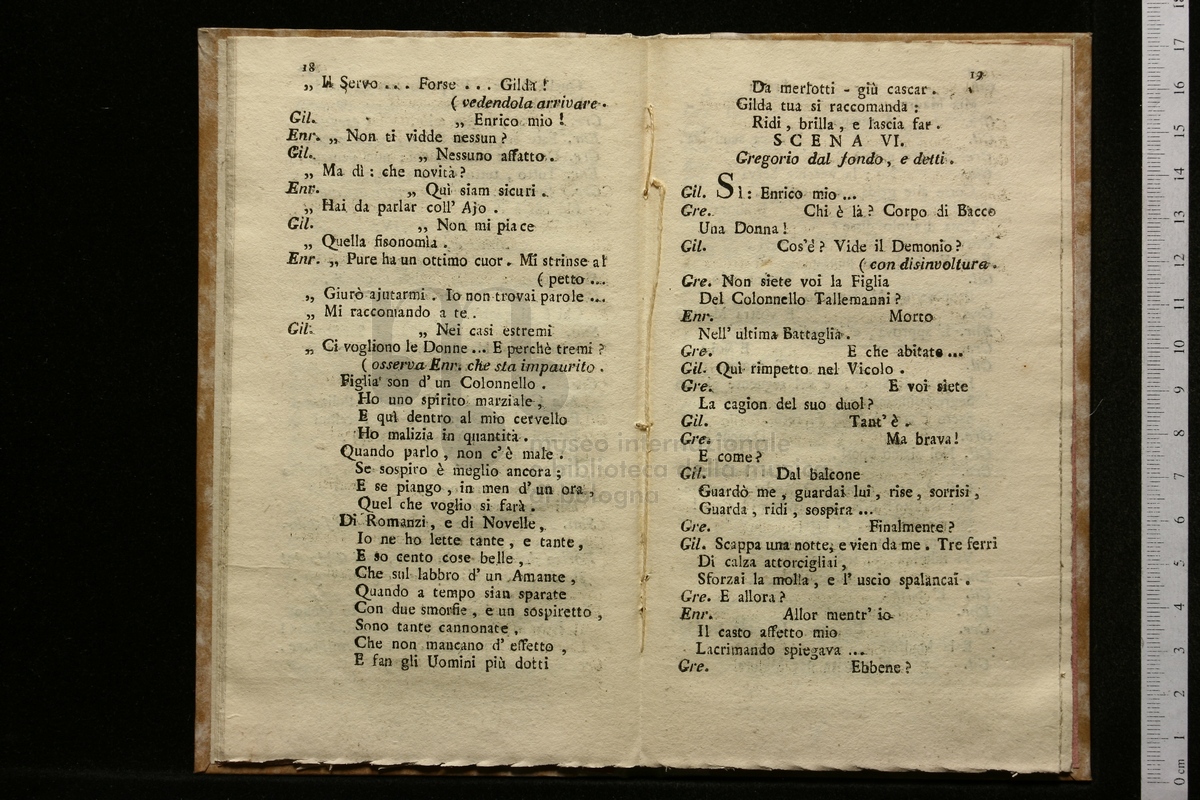 18
„ Il Servo ... Forse ... Gilda !
( vedendola arrivare.
Gil. „ Enrico mio !
Enr. „ Non ti vidde nessun ?
Gil. „ Nessuno affatto.
„ Ma dì : che novità ?
Enr. „ Quì siam sicuri .
„ Hai da parlar coll' Ajo .
Gil. „ Non mi piace
„ Quella fisonomìa .
Enr. „ Pure ha un ottimo cuor . Mi strinse al
( petto ...
„ Giurò ajutarmi . Io non trovai parole ...
„ Mi raccomando a te .
Gil. „ Nei casi estremi
„ Ci vogliono le Donne ... E perchè tremi ?
( osserva Enr. che sta impaurito .
Figlia son d' un Colonnello .
Ho uno spirito marziale ,
E quì dentro al mio cervello
Ho malizia in quantità .
Quando parlo , non c' è male .
Se sospiro è meglio ancora ;
E se piango , in men d' un ora ,
Quel che voglio si farà .
Di Romanzi , e di Novelle ,
Io ne ho lette tante , e tante ,
E so cento cose belle ,
Che sul labbro d' un Amante ,
Quando a tempo sian sparate
Con due smorfie , e un sospiretto ,
Sono tante cannonate ,
Che non mancano d' effetto ,
E fan gli Uomini più dotti
19
Da merlotti - giù cascar .
Gilda tua si raccomanda :
Ridi , brilla , e lascia far .
SCENA VI.
Gregorio dal fondo , e detti .
Gil. Sì : Enrico mio ...
Gre. Chi è là ? Corpo di Bacco
Una Donna !
Gil. Cos'è ? Vide il Demonio ?
( con disinvoltura .
Gre. Non siete voi la Figlia
Del Colonnello Tallemanni ?
Enr. Morto
Nell' ultima Battaglia .
Gre. E che abitate ...
Gil. Quì rimpetto nel Vicolo .
Gre. E voi siete
La cagion del suo duol ?
Gil. Tant' è .
Gre. Ma brava !
E come ?
Gil. Dal balcone
Guardò me , guardai lui , rise , sorrisi ,
Guarda , ridi , sospira ...
Gre. Finalmente ?
Gil. Scappa una notte, e vien da me . Tre ferri
Di calza attorcigliai ,
Sforzai la molla , e l' uscio spalancai .
Gre. E allora ?
Enr. Allor mentr' io
Il casto affetto mio
Lacrimando spiegava ...
Gre. Ebbene ?
museo internazionale
biblioteca della musica
di bologna
0 cm 1 2 3 4 5 6 7 8 9 10 11 12 13 14 15 16 17 18